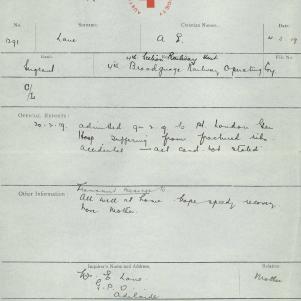 No. Surname. Christian Names.
1391 Lane A E. 4.3.19
Rank. Unit. File No.
4th Section Railway Unit
Sergeant late Broadgauge Railway Operating Coy.
OFFICIAL REPORTS:
20.3.19. admitted 9.2.19 to 1st London Gen
Hosp suffering from fractured ribs
accidental — act card not stated
Other Information
Transmit message to
All well at home hope speedy recovery
love Mother.
Inquirer's Name and Address. Relation.
Mrs. E Lane Mother
G.P.O.
Adelaide